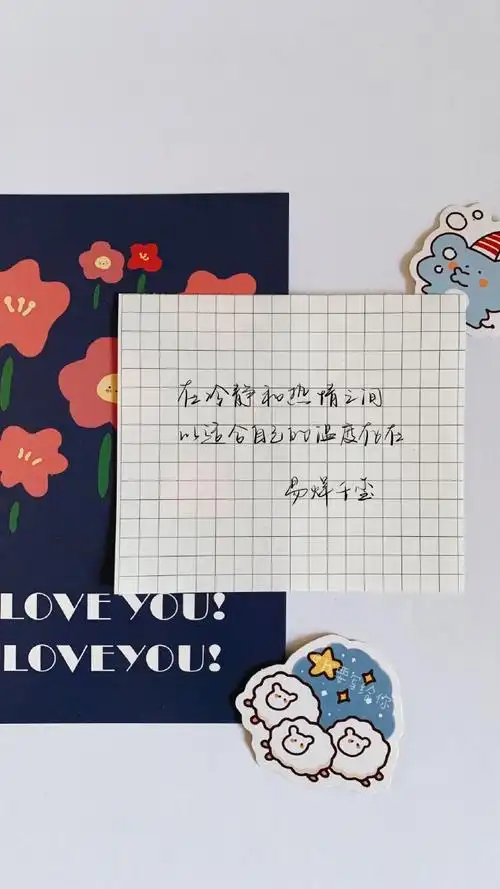 在冷静和热情之间
以适合自己的温度存在
易烊千玺
LOVE YOU!
LOVEYOU!